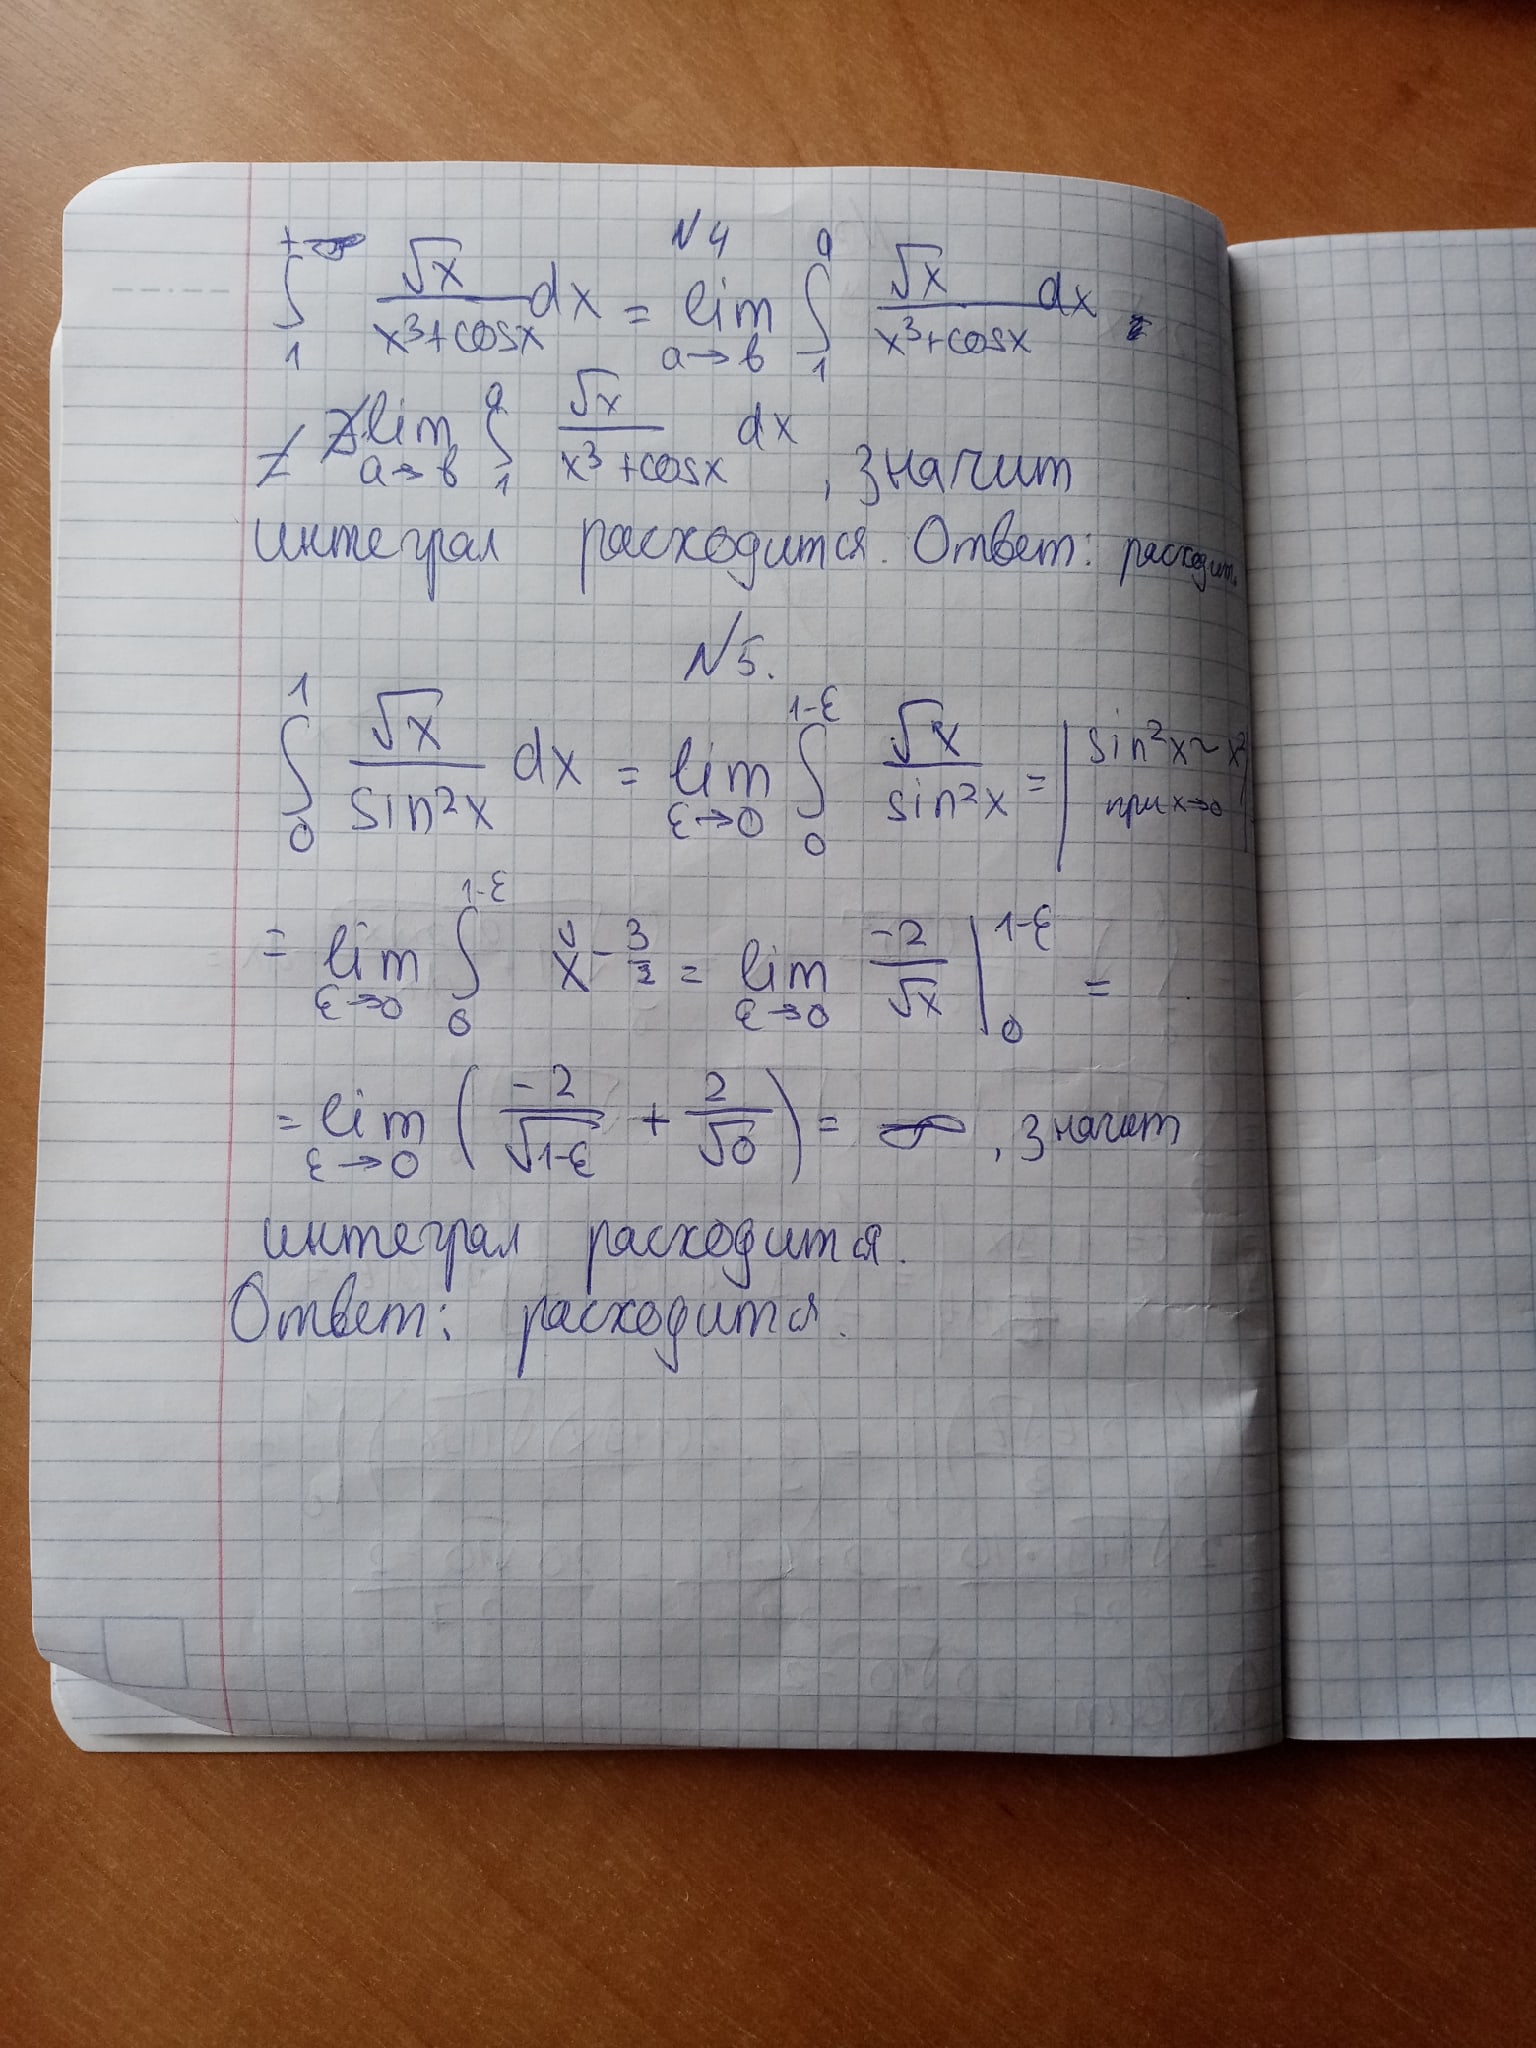 №4
+∞ ∫ 1 √x / x³+cosx dx = lim a→b a ∫ 1 √x / x³+cosx dx
≠ lim a→b a ∫ 1 √x / x³+cosx dx, значит
интеграл расходится. Ответ: расходит.
№5.
1 ∫ 0 √x / sin²x dx = lim ε→0 1-ε ∫ 0 √x / sin²x = | sin²x ~ x² при x→0 |
= lim ε→0 1-ε ∫ 0 x^-3/2 = lim ε→0 -2/√x | 1-ε 0 =
= lim ε→0 ( -2/√1-ε + 2/√0 ) = ∞, значит
интеграл расходится.
Ответ: расходится.